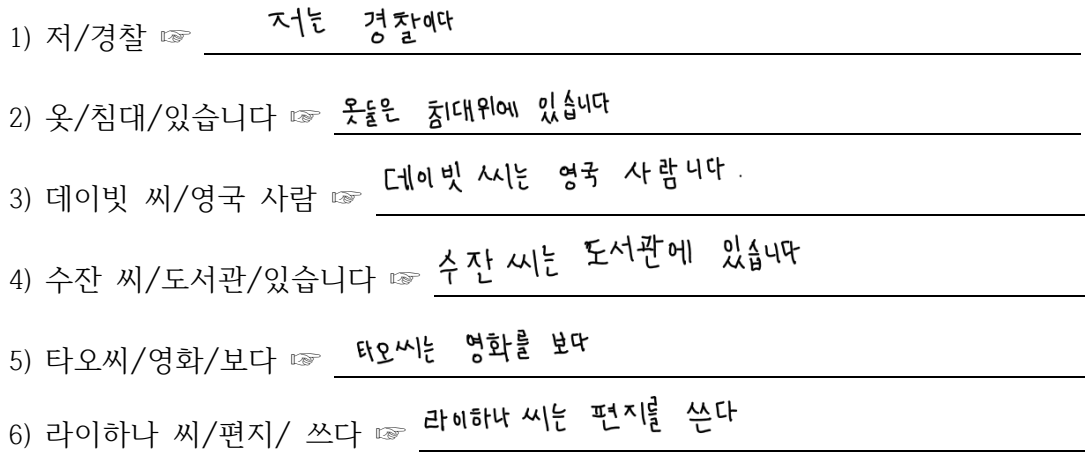 1) 저/경찰 ☞ 저는 경찰이다
2) 옷/침대/있습니다 ☞ 옷들은 침대위에 있습니다
3) 데이빗 씨/영국 사람 ☞ 데이빗 씨는 영국 사람니다.
4) 수잔 씨/도서관/있습니다 ☞ 수잔 씨는 도서관에 있습니다
5) 타오씨/영화/보다 ☞ 타오씨는 영화를 보다
6) 라이하나 씨/편지/ 쓰다 ☞ 라이하나 씨는 편지를 쓴다